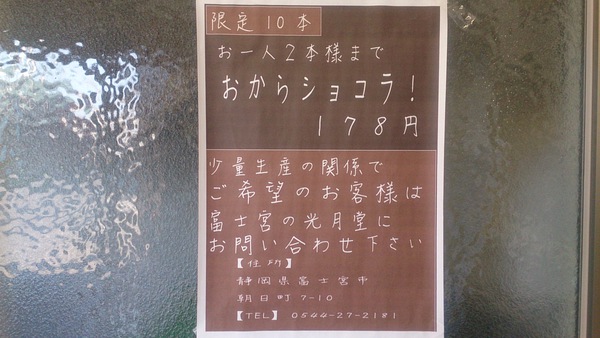 限定10本
お一人2本様まで
おからショコラ!
178円
少量生産の関係で
ご希望のお客様は
富士宮の光月堂に
お問い合わせ下さい
【住所】
静岡県富士宮市
朝日町7-10
【TEL】 0544-27-2181